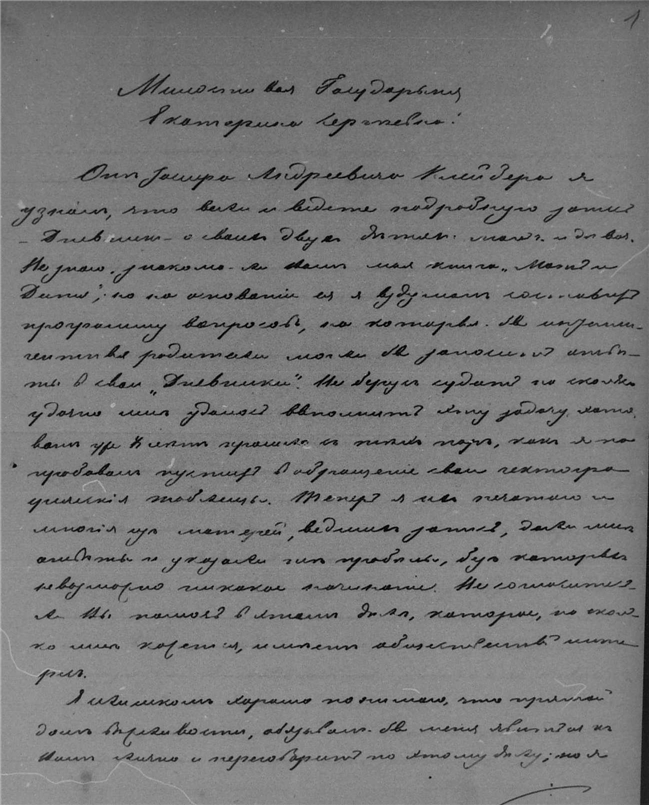 1
Милостивая Государыня
Екатерина Сергѣевна!
Отъ Іосифа Андреевича Клейбера я
узналъ, что вы и ведете подробную запись
- Дневник - о своихъ двухъ дѣтяхъ.
Не знаю, знакома-ли Вамъ моя книга „Мать и
Дитя", но на основаніи ея я вздумалъ составить
программу вопросовъ, на которые бы интелли-
гентные родители могли бы заносить отвѣ-
ты в свои „Дневники". Не берусь судить на сколько
удачно мнѣ удалось выполнить эту задачу,
вотъ уже лѣтъ прошло съ тѣхъ поръ, какъ я по
пробовалъ пустить в обращеніе свои гектогра
фическія таблицы. Теперь я их печатаю и
многія изъ матерей, ведшихъ запись, дали мнѣ
отвѣты и указали на пробѣлы, безъ которыхъ
невозможно никакое начинаніе. Не согласитесь
ли Вы помочь в этомъ дѣлѣ, которое, на сколь
ко мнѣ кажется, имѣетъ общественный инте
ресъ.
Я слишкомъ хорошо понимаю, что прямой
долгъ вѣжливости, обязывалъ бы меня явиться къ
Вамъ лично и переговорить по этому дѣлу; но я